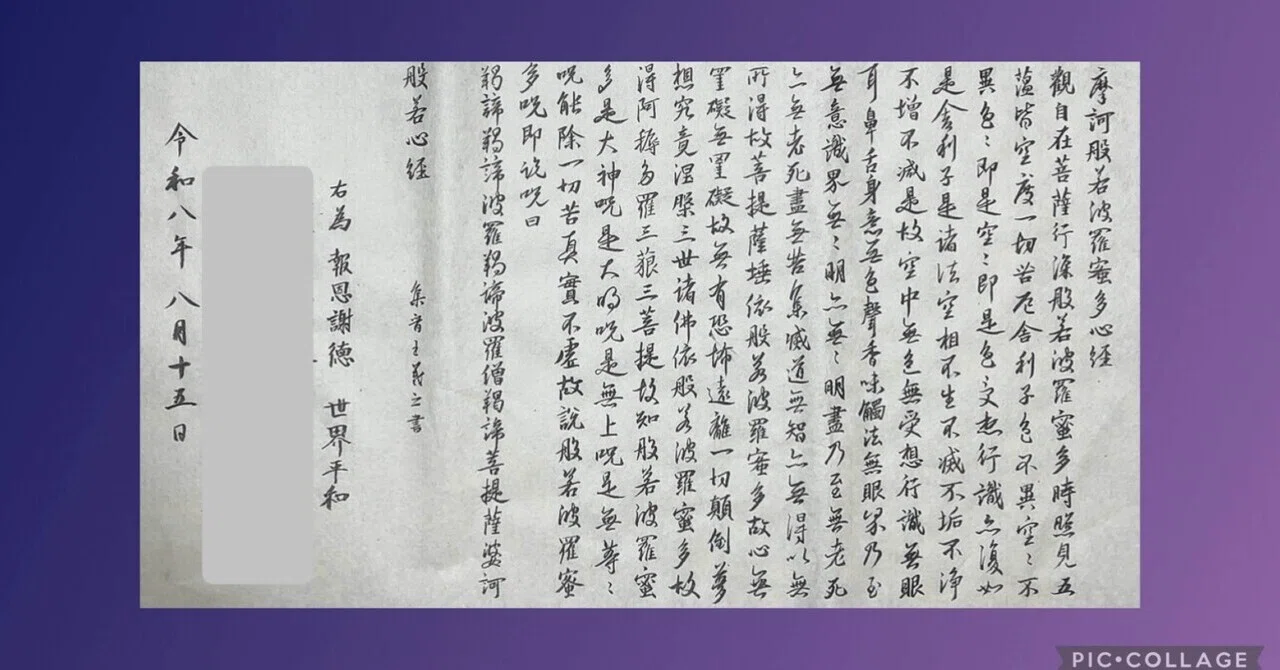 摩訶般若波羅蜜多心経
觀自在菩薩行深般若波羅蜜多時照見五
蕴皆空度一切苦厄舎利子色不異空〻不
異色〻即是空〻即是色受想行識亦復如
是舎利子是諸法空相不生不滅不垢不浄
不增不減是故空中無色無受想行識無眼
耳鼻舌身意無色聲香味觸法無眼界乃至
無意識界無〻明亦無〻明盡乃至無老死
亦無老死盡無苦集滅道無智亦無得以無
所得故菩提薩埵依般若波羅蜜多故心無
罣礙無罣礙故無有恐怖遠離一切顛倒夢
想究竟涅槃三世諸佛依般若波羅蜜多故
得阿耨多羅三藐三菩提故知般若波羅蜜
多是大神呪是大明呪是無上呪是無等〻
呪能除一切苦真實不虛故說般若波羅蜜
多呪即說呪曰
羯諦羯諦波羅羯諦波羅僧羯諦菩提薩婆訶
般若心経
集字王羲之書
右為 報恩謝徳 世界平和
令和八年八月十五日
PIC•COLLAGE